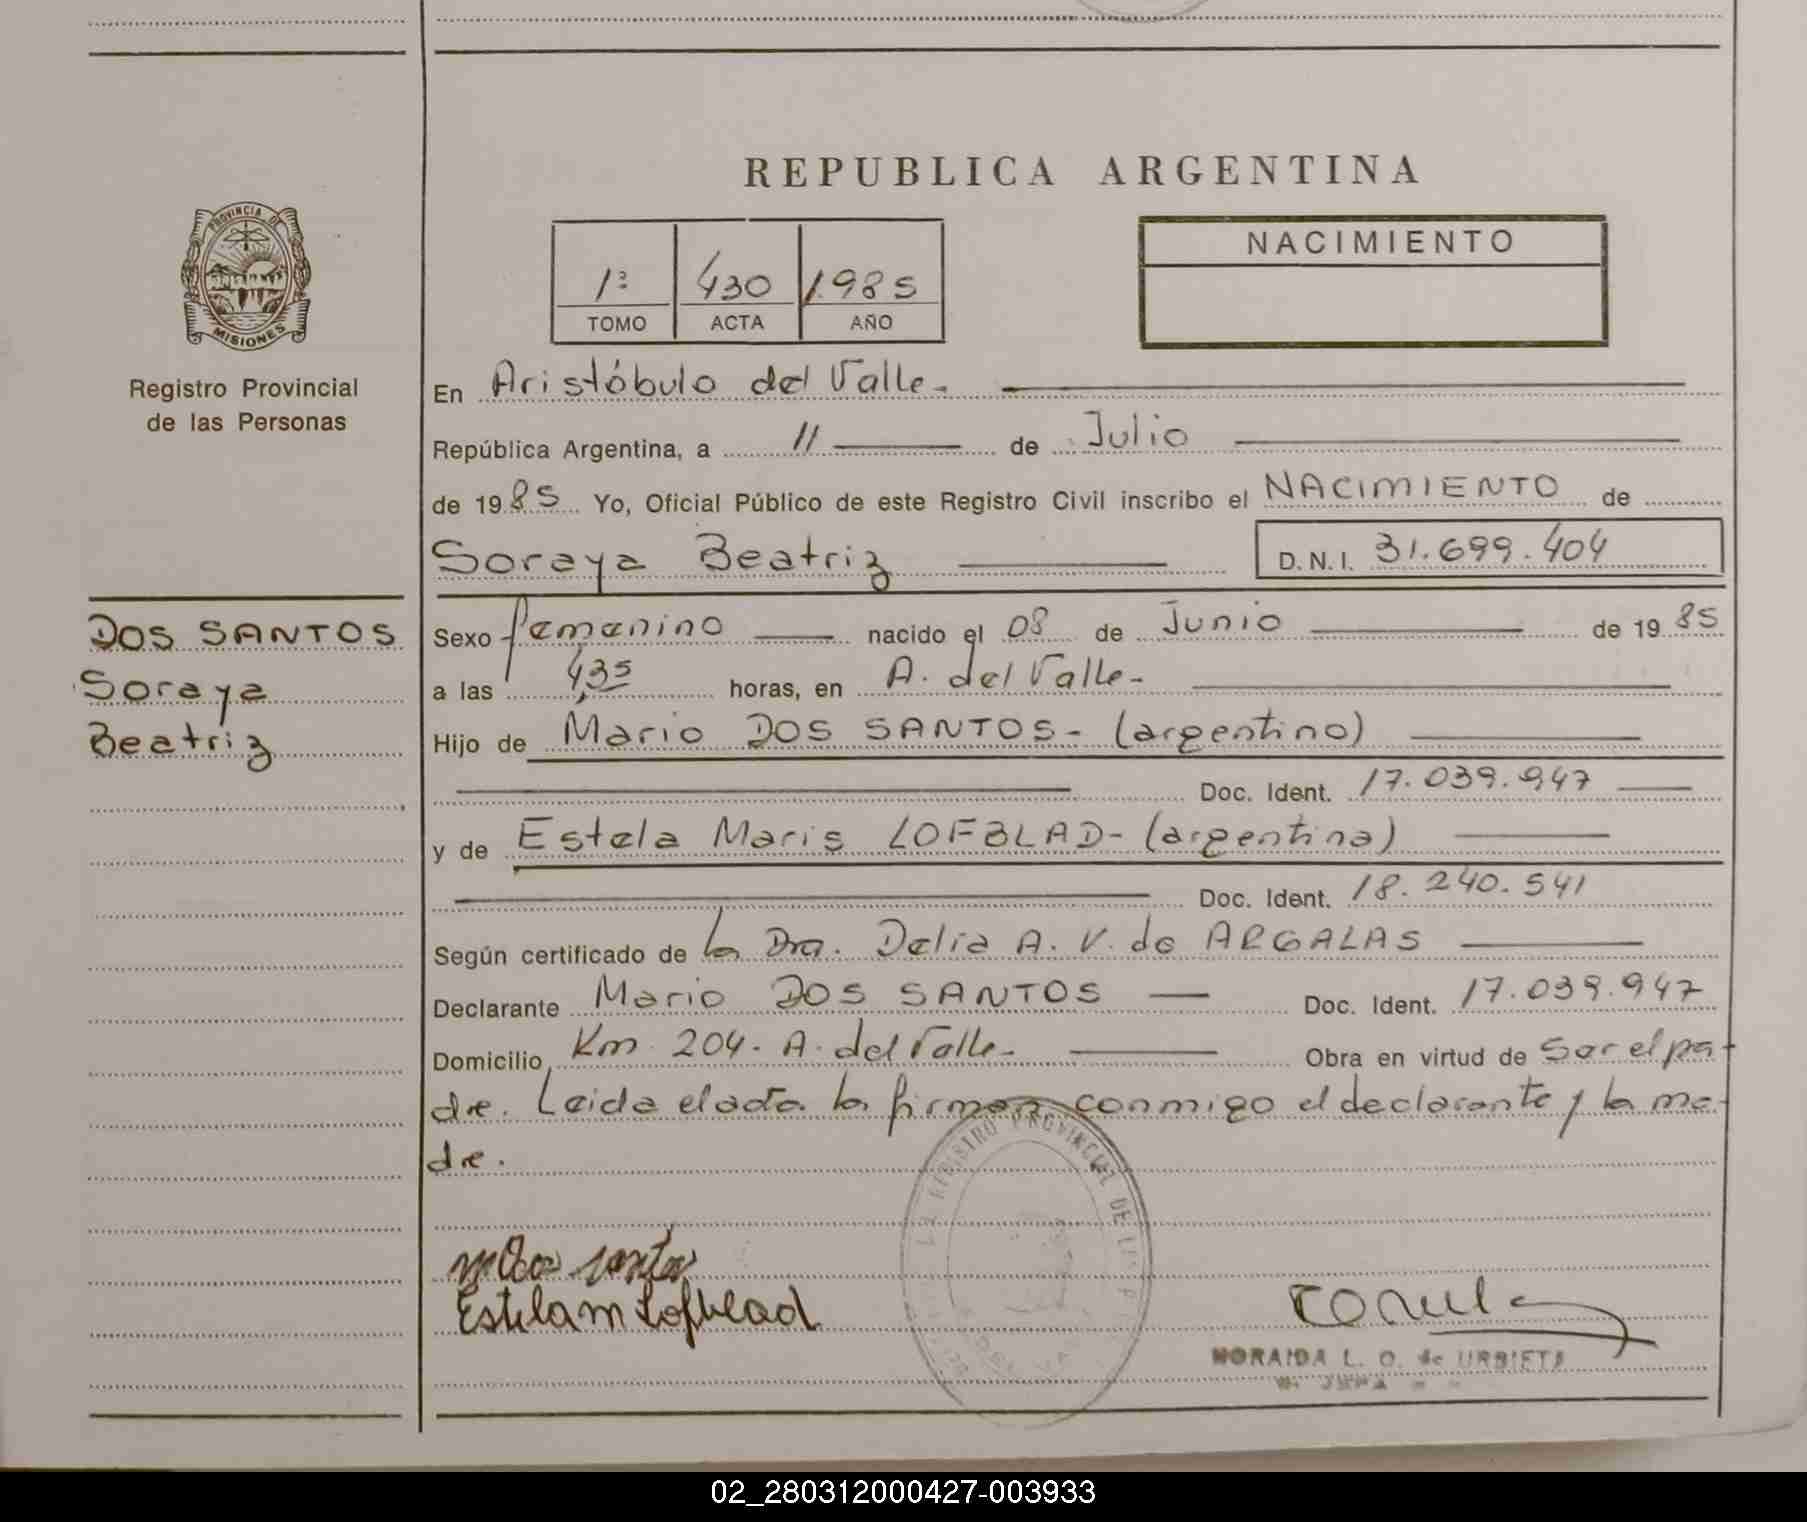 REPUBLICA ARGENTINA
PROVINCIA DE
MISIONES
Registro Provincial
de las Personas
1º 430 1.985
TOMO ACTA AÑO
NACIMIENTO
En Aristóbulo del Valle.
República Argentina, a 11 de Julio
de 19 85 Yo, Oficial Público de este Registro Civil inscribo el NACIMIENTO de
Soraya Beatriz D.N.I. 31.699.404
DOS SANTOS
Soraya
Beatriz
Sexo femenino nacido el 08 de Junio de 19 85
a las 4,35 horas, en A. del Valle-
Hijo de Mario DOS SANTOS- (argentino)
Doc. Ident. 17.039.947
y de Estela Maris LOFBLAD- (argentina)
Doc. Ident. 18.240.541
Según certificado de la Dra. Delia A. V. de ARGALAS
Declarante Mario DOS SANTOS Doc. Ident. 17.039.947
Domicilio Km 204. A. del Valle- Obra en virtud de ser el pa-
dre. Leida el acta la firman conmigo el declarante y la ma-
dre.
REGISTRO PROVINCIAL DE
Estela M Lofblad
NORAIDA L. O. de URBIETA
02_280312000427-003933